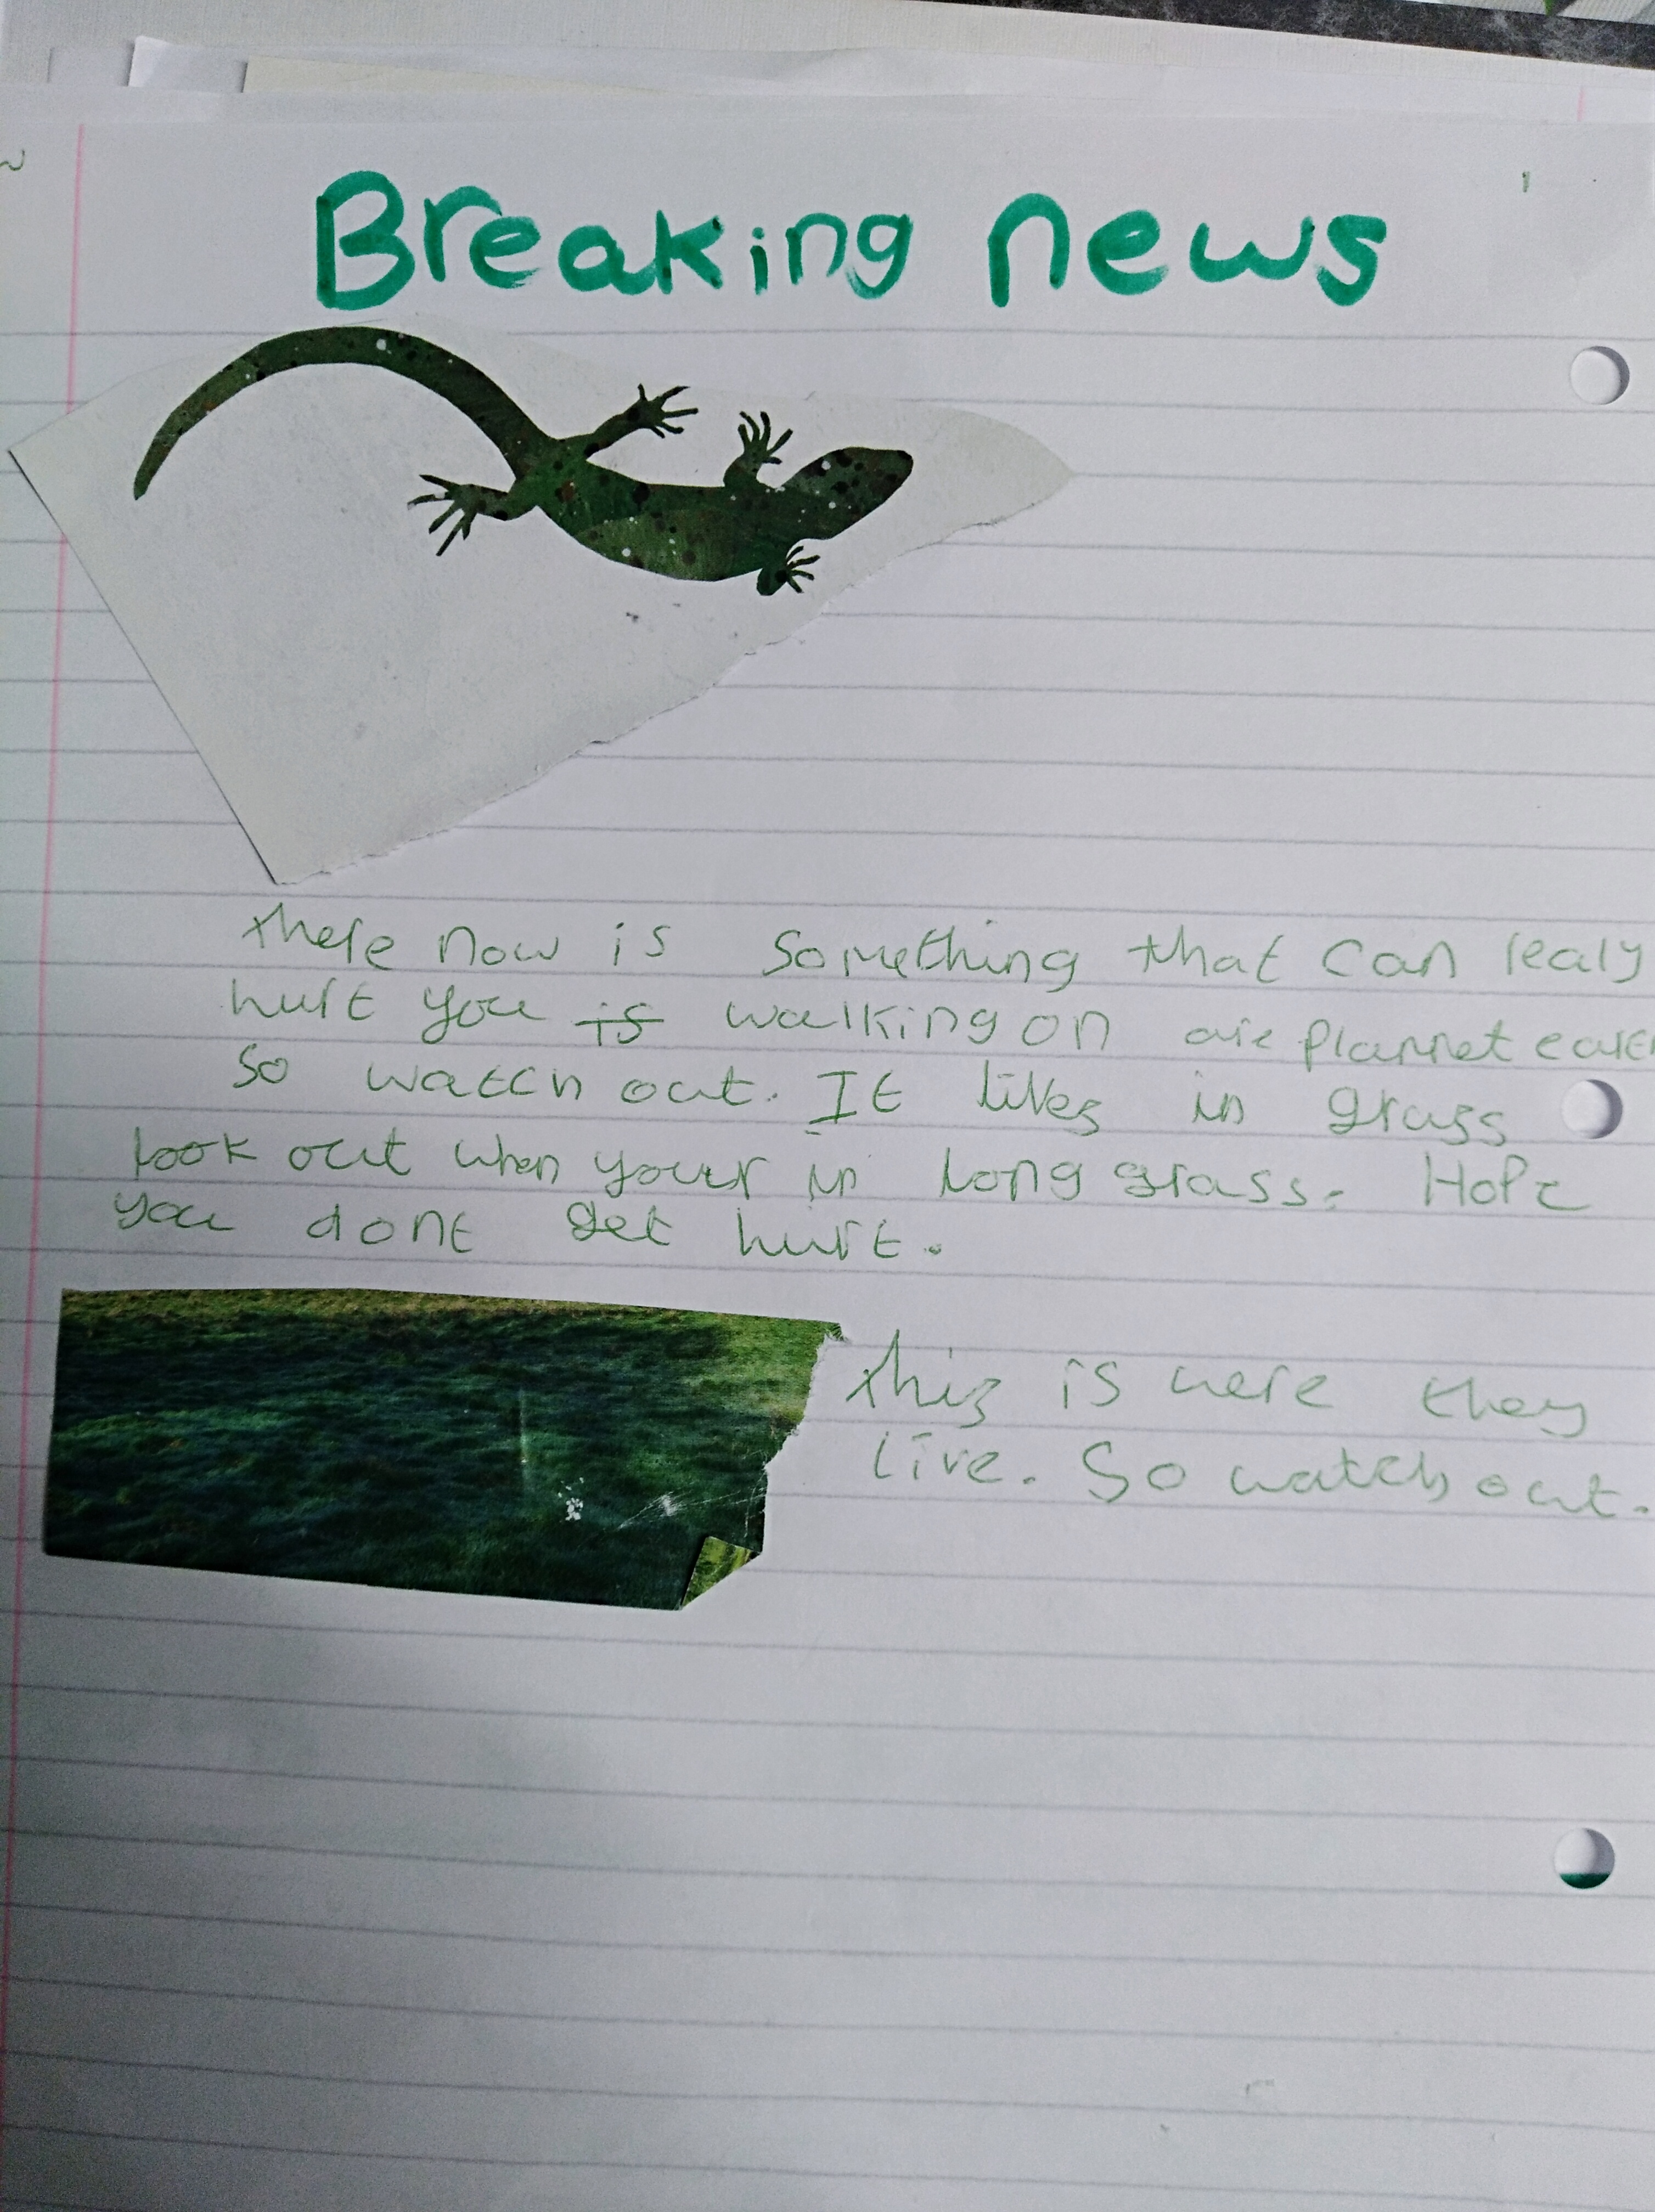 Breaking news
there now is something that can realy
hurt you is walking on are plannet
so watch out. It lives in grass
look out when your in long grass. Hope
you dont get hurt.
this is were they
live. So watch out.